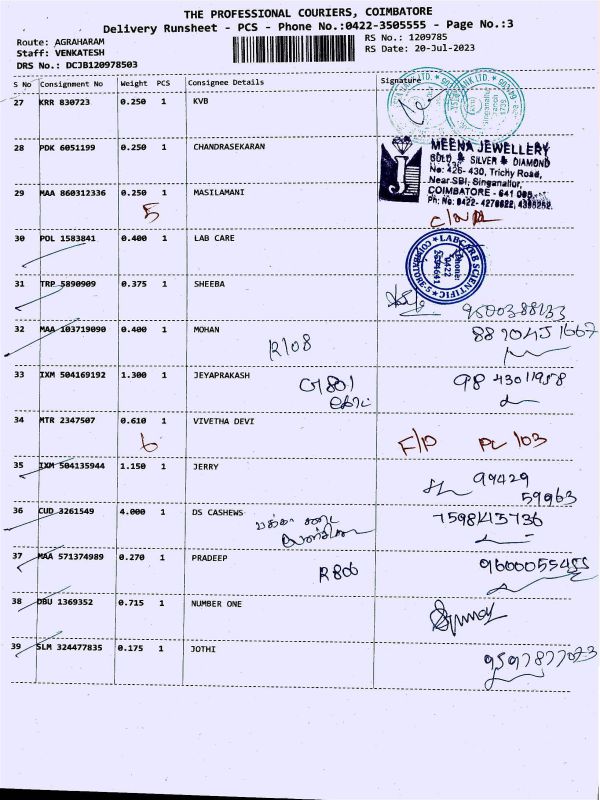 THE PROFESSIONAL COURIERS, COIMBATORE
Delivery Runsheet - PCS - Phone No.:0422-3505555 - Page No.:3
Route: AGRAHARAM
RS No.: 1209785
Staff: VENKATESH
RS Date: 20-Jul-2023
DRS No.: DCJB120978503
S No Consignment No Weight PCS Consignee Details Signature
27 KRR 830723 0.250 1 KVB
28 PDK 6051199 0.250 1 CHANDRASEKARAN
MEENA JEWELLERY
GOLD SILVER DIAMOND
No: 426-430, Trichy Road,
Near SBI, Singanallur,
COIMBATORE - 641 005.
29 MAA 860312336 0.250 1 MASILAMANI
5
30 POL 1583841 0.400 1 LAB CARE
LABCARE SCIENTIFIC
31 TRP 5890909 0.375 1 SHEEBA
32 MAA 103719090 0.400 1 MOHAN
R108
33 IXM 504169192 1.300 1 JEYAPRAKASH
98 43011958
34 MTR 2347507 0.610 1 VIVETHA DEVI
6 F/P PL 103
35 IXM 504135944 1.150 1 JERRY
99429
59963
36 CUD 3261549 4.000 1 DS CASHEWS
37 MAA 571374989 0.270 1 PRADEEP
R806
38 DBU 1369352 0.715 1 NUMBER ONE
39 SLM 324477835 0.175 1 JOTHI